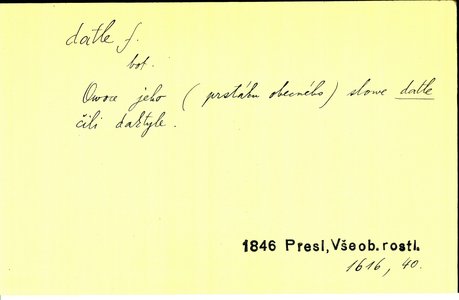 datle f.
bot.
Owoce jeho (prstáku obecného) slowe datle
čili daktyle.
1846 Presl, Všeob. rostl.
1616, 40.